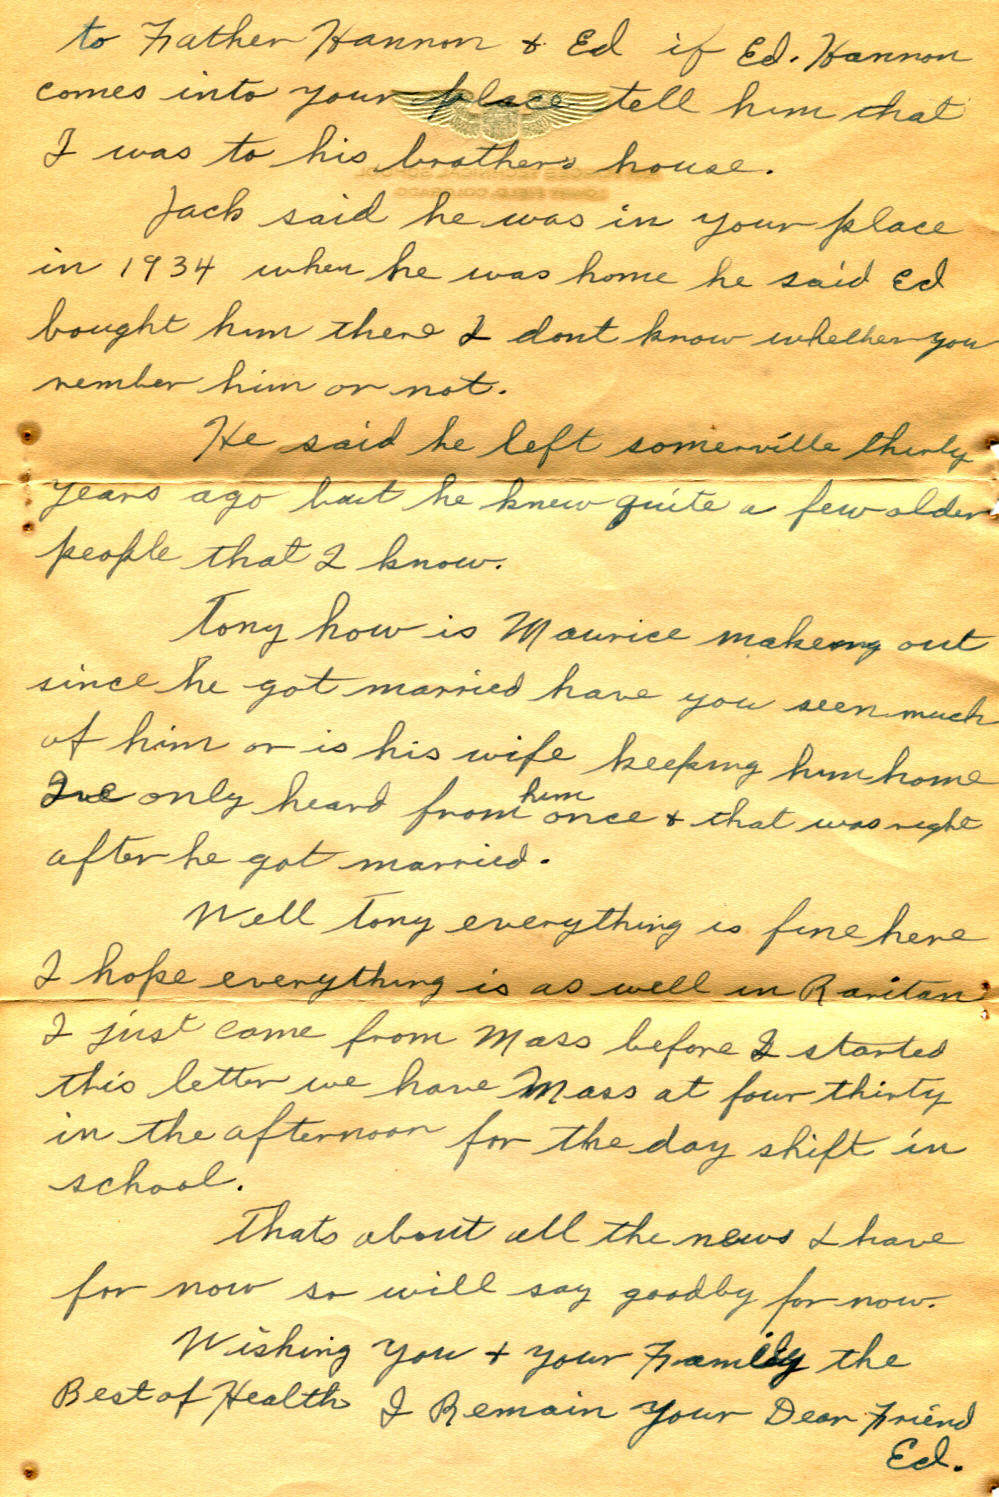 to Father Hannon & Ed if Ed. Hannon
comes into your place tell him that
I was to his brothers house.
Jack said he was in your place
in 1934 when he was home he said Ed
bought him there I dont know whether you
rember him or not.
He said he left somerville thirty
years ago but he knew quite a few older
people that I know.
Tony how is Maurice makeing out
since he got married have you seen much
of him or is his wife keeping him home
I've only heard from him once & that was right
after he got married.
Well Tony everything is fine here
I hope everything is as well in Raritan
I just came from Mass before I started
this letter we have Mass at four thirty
in the afternoon for the day shift in
school.
Thats about all the news I have
for now so will say goodby for now.
Wishing you + your Family the
Best of Health I Remain Your Dear Friend
Ed.